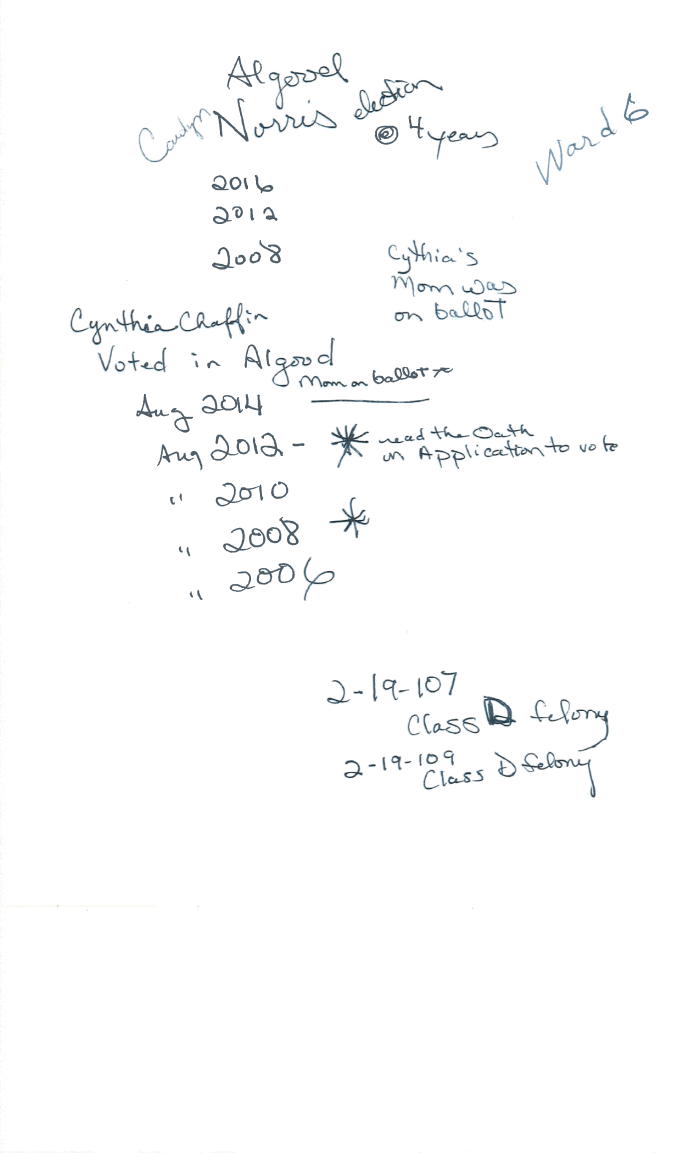 Algood
Carolyn Norris election
@ 4 years
Ward 6
2016
2012
2008
Cythia's
Mom was
on ballot
Cynthia Chaffin
Voted in Algood
Mom on ballot
Aug 2014
Aug 2012 - * read the Oath
on Application to vote
" 2010
" 2008 *
" 2006
2-19-107
Class D felony
2-19-109
Class D felony